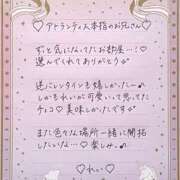 ♡アトランティス本指のお兄さん♡
ずっと気になってたお部屋…!♡
選んでくれてありがとう
逆にレンタインも嬉しかったー♪
しかもれいが可愛いって思ってた
チョコ♡美味しかったです
また色々な場所一緒に開拓
したいな…♡楽しみ♪
♡れい♡